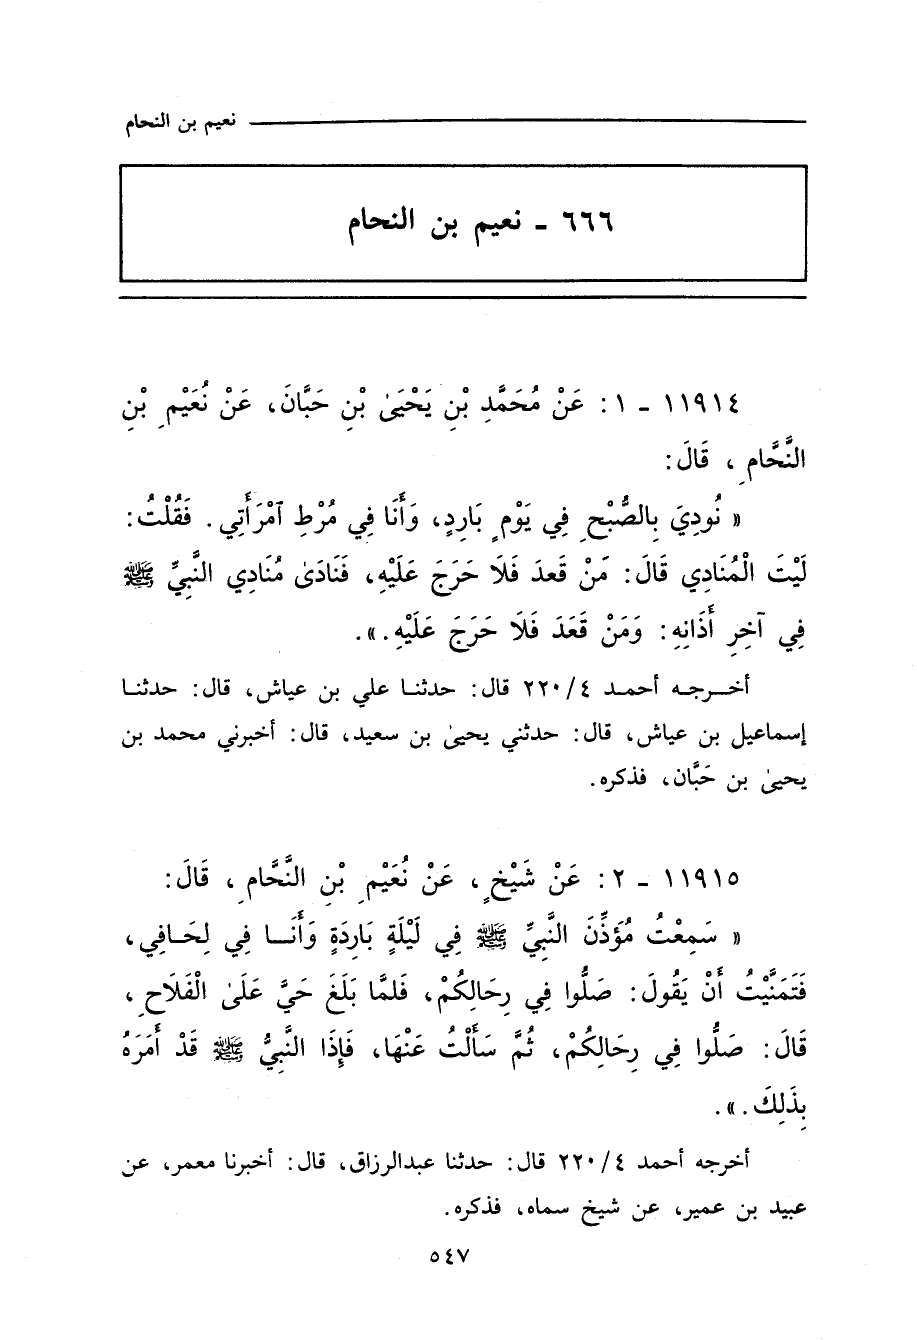 نعيم بن النحام
٦٦٦ - نعيم بن النحام
١١٩١٤ - ١: عَنْ مُحَمَّدِ بْنِ يَحْيَىٰ بْنِ حَبَّانَ، عَنْ نُعَيْمِ بْنِ
النَّحَّامِ، قَالَ:
« نُودِيَ بِالصُّبْحِ فِي يَوْمٍ بَارِدٍ، وَأَنَا فِي مُرْطِ آمْرَأَتِي. فَقُلْتُ:
لَيْتَ الْمُنَادِي قَالَ: مَنْ قَعدَ فَلَا حَرَجَ عَلَيْهِ، فَنَادَىٰ مُنَادِي النَّبِيِّ ﷺ
فِي آخِرِ أَذَانِهِ: وَمَنْ قَعَدَ فَلَا حَرَجَ عَلَيْهِ.».
أخرجه أحمد ٢٢٠/٤ قال: حدثنا علي بن عياش، قال: حدثنا
إسماعيل بن عياش، قال: حدثني يحيىٰ بن سعيد، قال: أخبرني محمد بن
يحيىٰ بن حَبَّان، فذكره.
١١٩١٥ - ٢: عَنْ شَيْخٍ، عَنْ نُعَيْمِ بْنِ النَّحَّامِ، قَالَ:
« سَمِعْتُ مُؤَذِّنَ النَّبِيِّ ﷺ فِي لَيْلَةٍ بَارِدَةٍ وَأَنَا فِي لِحَافِي،
فَتَمَنَّيْتُ أَنْ يَقُولَ: صَلُّوا فِي رِحَالِكُمْ، فَلَمَّا بَلَغَ حَيَّ عَلَىٰ الْفَلَاحِ،
قَالَ: صَلُّوا فِي رِحَالِكُمْ، ثُمَّ سَأَلْتُ عَنْهَا، فَإِذَا النَّبِيُّ ﷺ قَدْ أَمَرَهُ
بِذَلِكَ.».
أخرجه أحمد ٢٢٠/٤ قال: حدثنا عبدالرزاق، قال: أخبرنا معمر، عن
عبيد بن عمير، عن شيخ سماه، فذكره.
٥٤٧